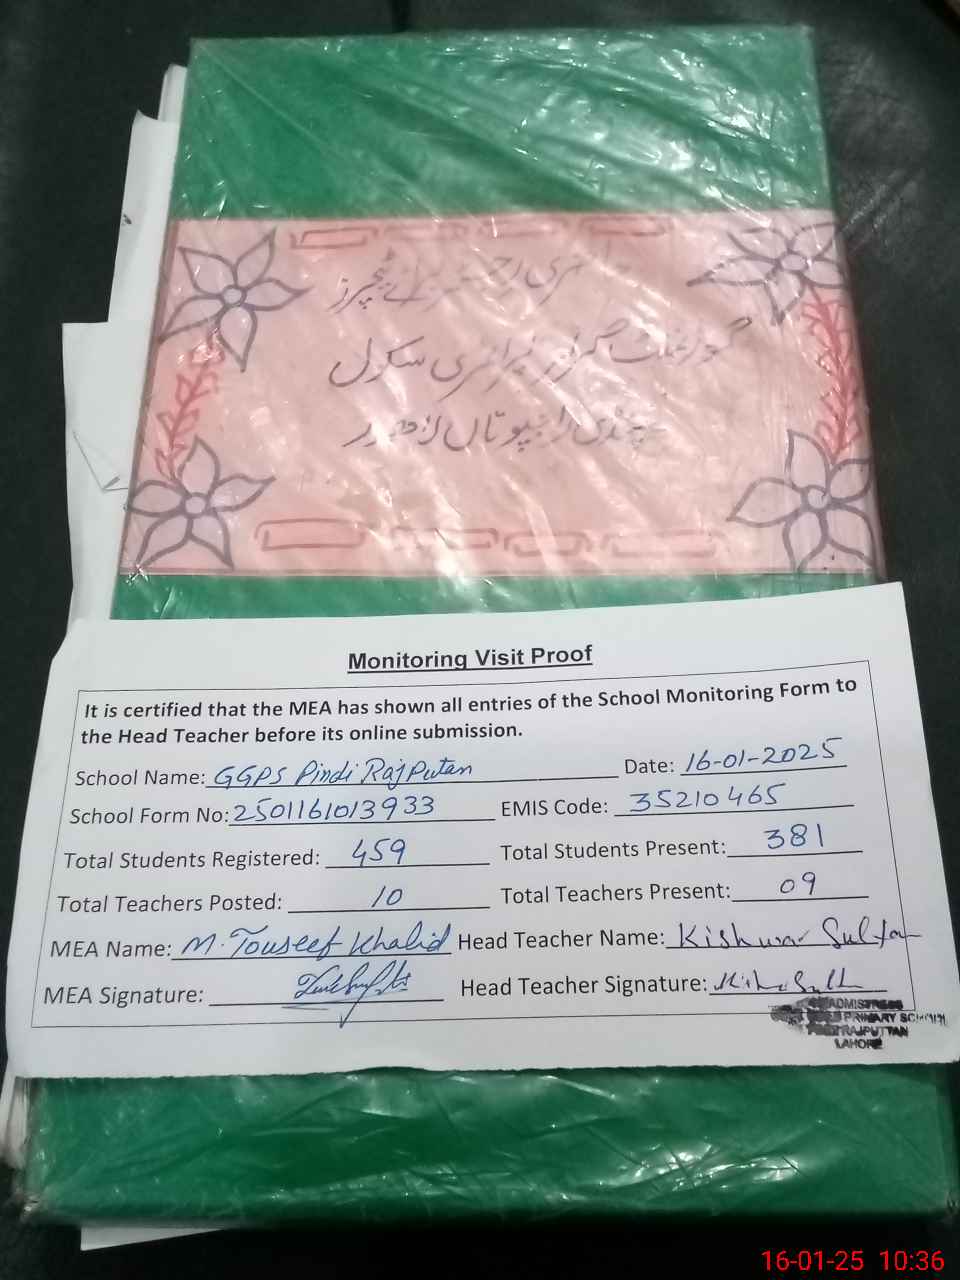 حاضری رجسٹر برائے ٹیچرز
گورنمنٹ گرلز پرائمری سکول
پنڈی راجپوتاں لاہور
Monitoring Visit Proof
It is certified that the MEA has shown all entries of the School Monitoring Form to
the Head Teacher before its online submission.
School Name: GGPS Pindi RajPutan Date: 16-01-2025
School Form No: 2501161013933 EMIS Code: 35210465
Total Students Registered: 459 Total Students Present: 381
Total Teachers Posted: 10 Total Teachers Present: 09
MEA Name: M. Touseef Khalid Head Teacher Name: Kishwar Sultan
MEA Signature: Head Teacher Signature:
PRIMARY
RAJPUTTAN
LAHORE
16-01-25 10:36